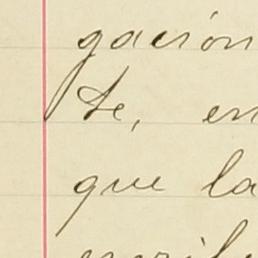 gación
te, en
que la